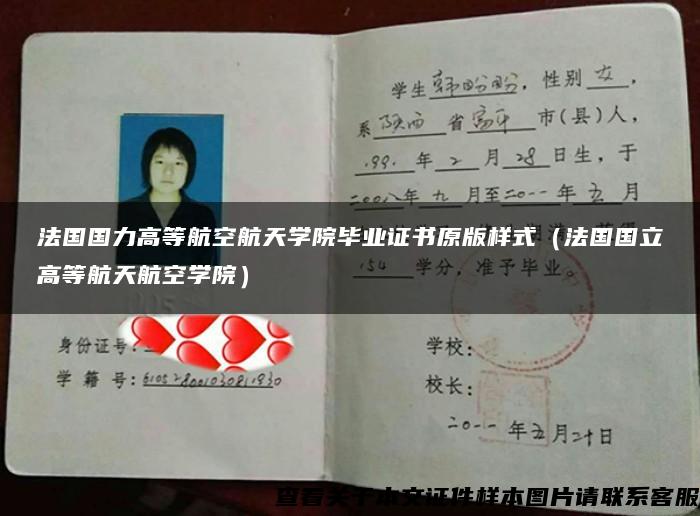 学生韩盼盼，性别女，
系陕西省富平市(县)人，
1991年2月28日生，于
二〇〇八年九月至二〇一一年五月
法国国力高等航空航天学院毕业证书原版样式（法国国立
高等航天航空学院）
154学分，准予毕业。
身份证号:
学籍号:
学校:
校长:
二〇一一年五月二十日
查看关于本文证件样本图片请联系客服